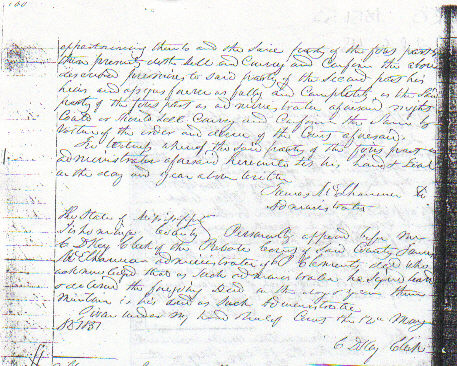 160
appertaining thereto and the said party of the first part
these presents doth sell and Convey and Confirm the above
described premises to said party of the second part his
heirs and assigns forever as fully and Completely as the said
party of the first part as administrator aforesaid might
Could or should sell Convey and Confirm the same by
virtue of the order and decree of the Court aforesaid.
In testimony whereof the said party of the first part as
administrator aforesaid hereunto sets his hand & Seal
on the day and year above written
James
Administrator
The State of Mississippi
Tishomingo County Personally appeared before me
C D Key Clerk of the Probate Court of said County James
administrator of Clements decd who
acknowledged that as such administrator he signed sealed
delivered the foregoing Deed on the day & year therein
mention as his deed as such administrator
Given under my hand & seal of Court this 12th May
C D Key Clerk